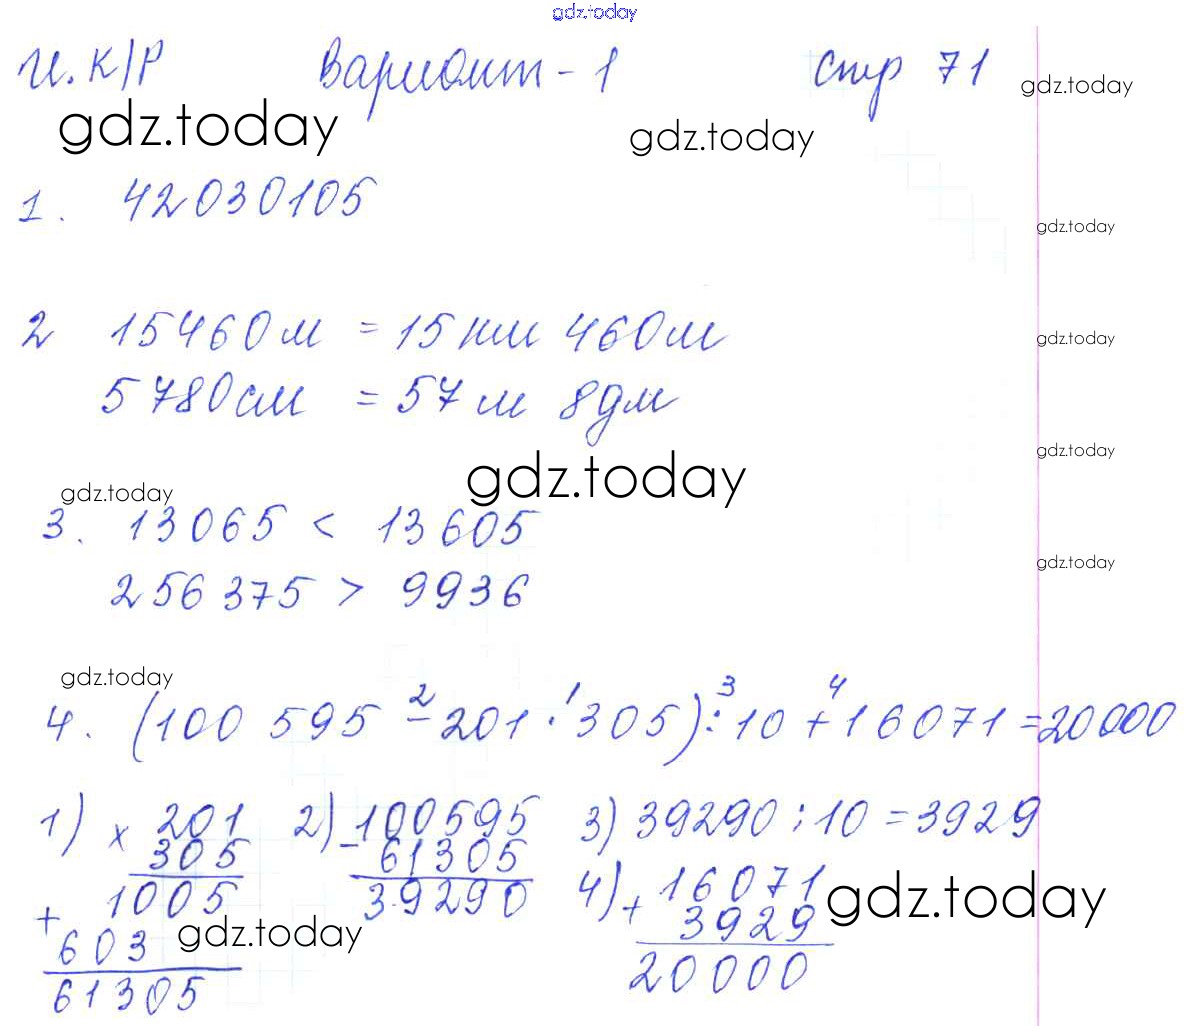 gdz.today
И. К/Р Вариант - 1 стр 71
gdz.today
gdz.today gdz.today
1. 42030105
gdz.today
2 15460м = 15 км 460м
gdz.today
5780см = 57 м 8дм
gdz.today
gdz.today gdz.today
3. 13065 < 13605
gdz.today
256375 > 9936
gdz.today
2 1 3 4
4. (100 595 - 201 · 305) : 10 + 16071 = 20000
1) × 201 2) - 100595 3) 39290 : 10 = 3929
305 61305
1005 39290 4) + 16071 gdz.today
+ 603 gdz.today 3929
61305 20000